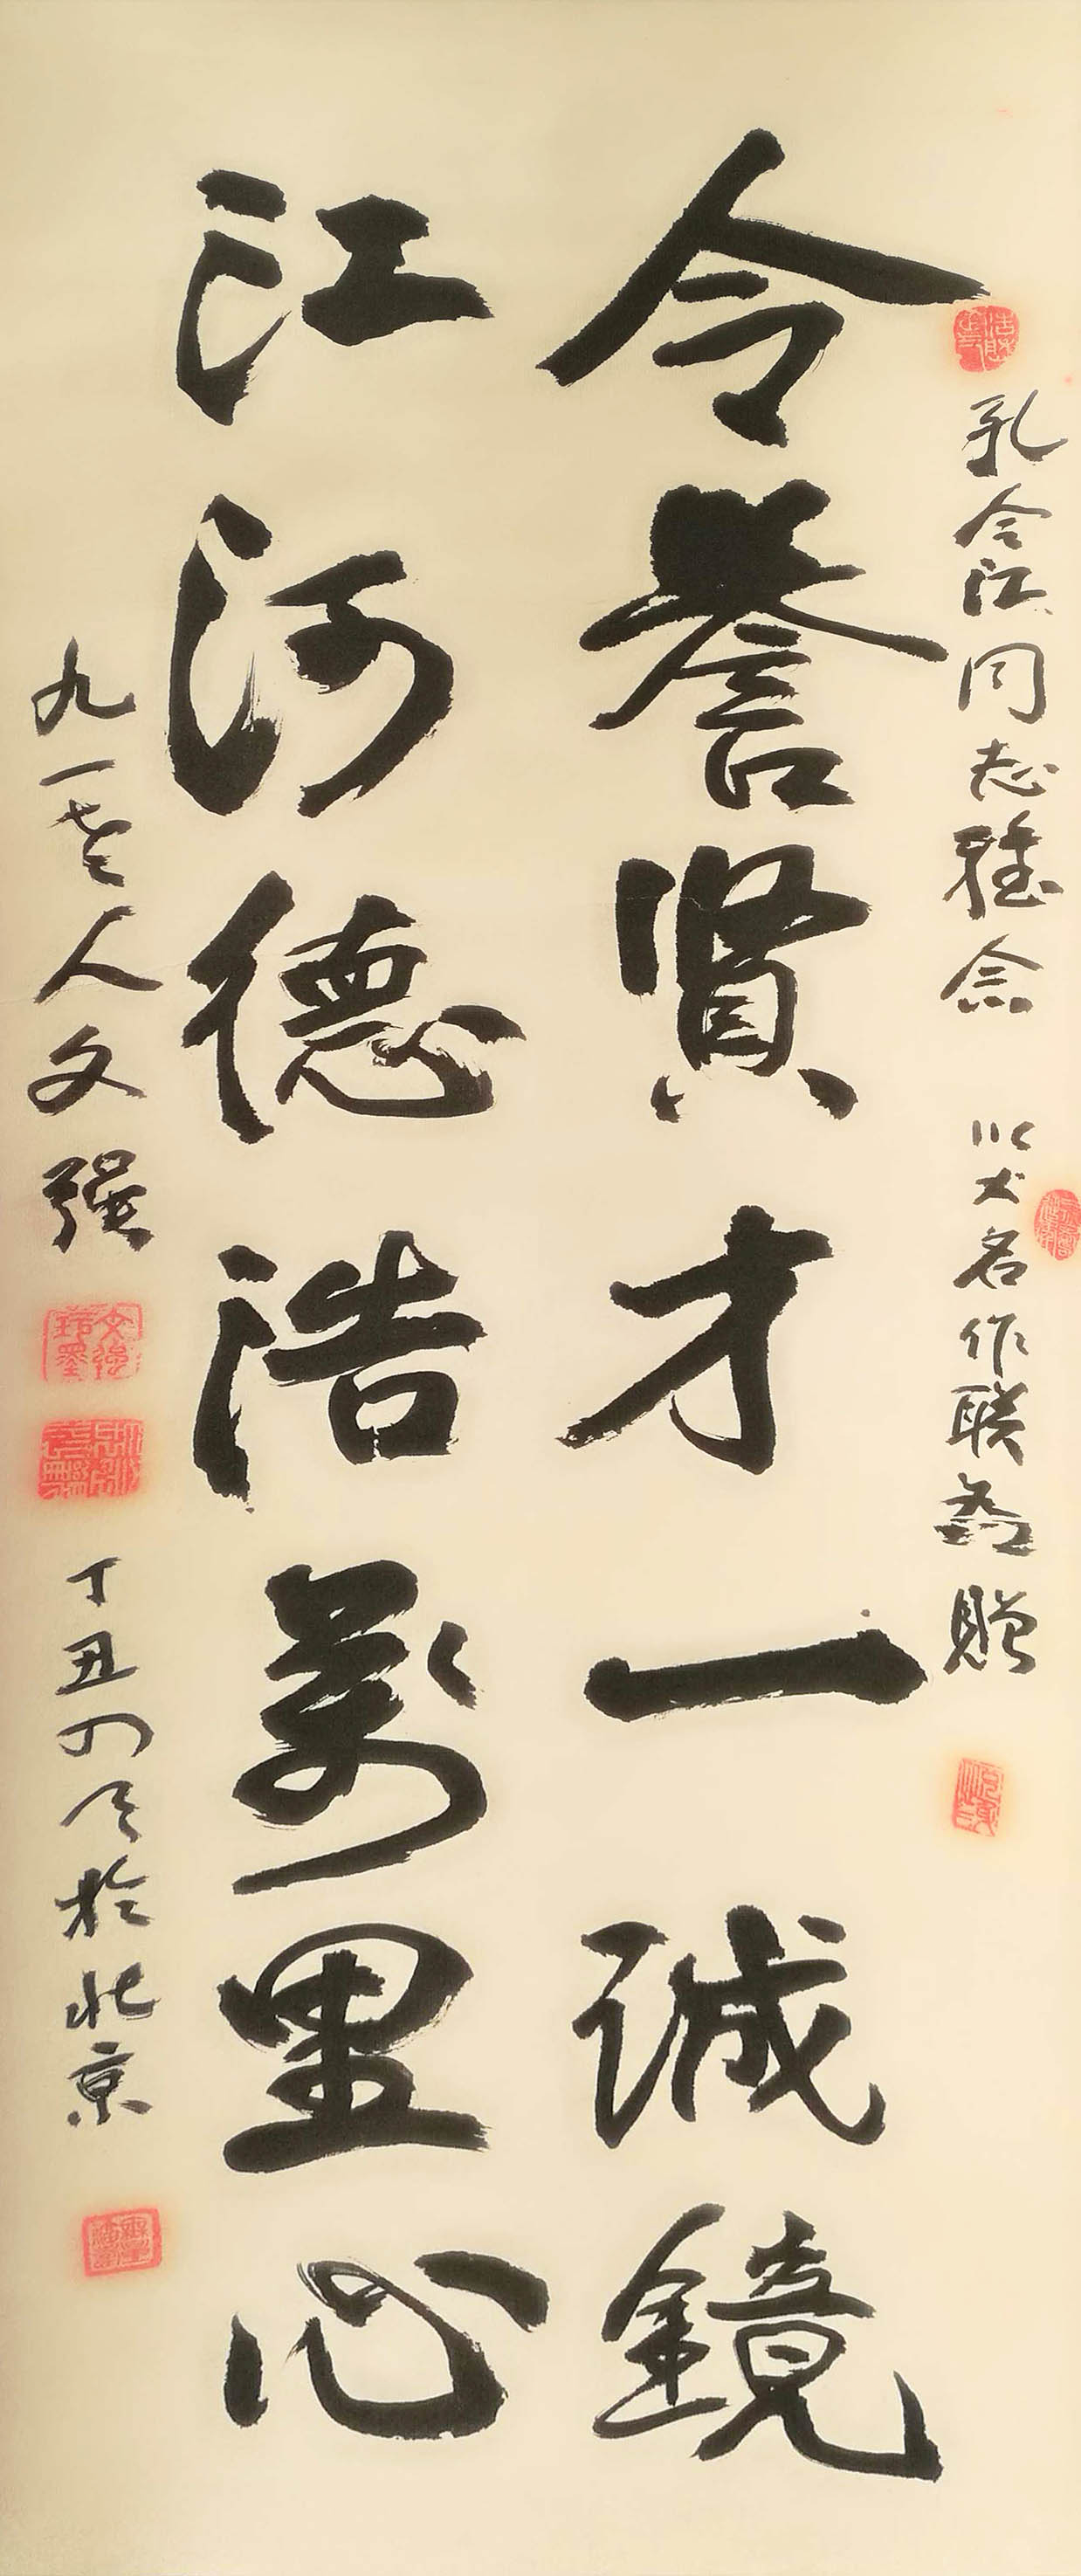 孔令江同志雅念 以大名作联为赠
令誉賢才一誠鏡
江河德浩萬里心
九一老人文强
丁丑 於北京